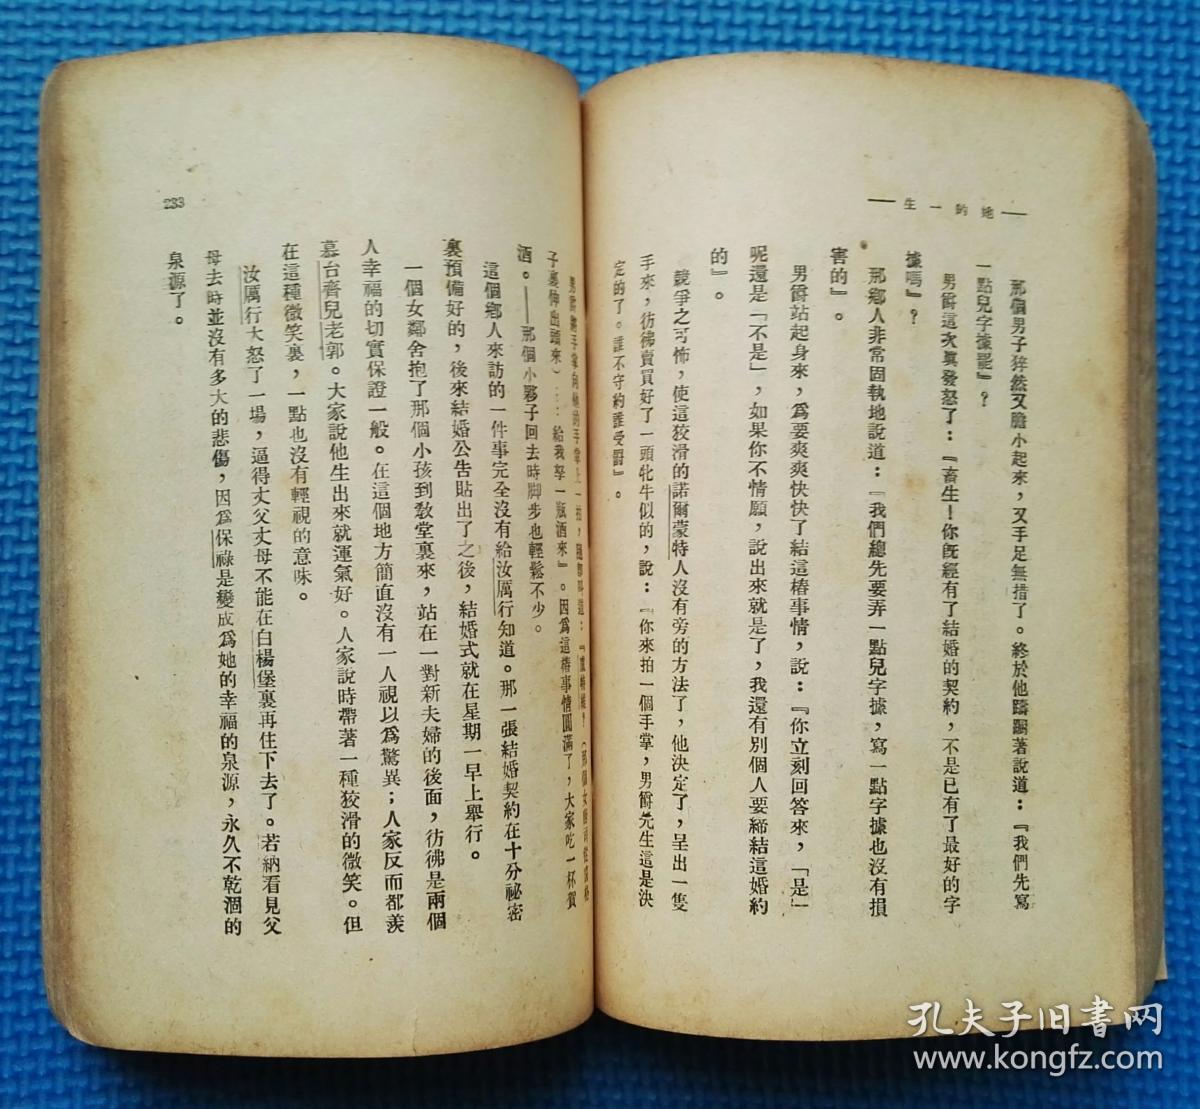 生一的她
那個男子猝然又膽小起來，又手足無措了。終於他躊躇著說道：『我們先寫
一點兒字據罷』？
男爵這次眞發怒了：『畜生！你旣經有了結婚的契約，不是已有了最好的字
據嗎』？
那鄉人非常固執地說道：『我們總先要弄一點兒字據，寫一點字據也沒有損
害的』。
男爵站起身來，爲要爽爽快快了結這樁事情，說：『你立刻回答來，「是」
呢還是「不是」，如果你不情願，說出來就是了，我還有別個人要締結這婚約
的』。
競爭之可怖，使這狡滑的諾爾蒙特人沒有旁的方法了，他決定了，呈出一隻
手來，彷彿賣買好了一頭牝牛似的，說：『你來拍一個手掌，男爵先生這是決
定的了。誰不守約誰受罰』。
男爵將手掌向他的手掌上一拍，
子裏伸出頭來）：…給我拏一瓶酒來』。因爲這樁事情圓滿了，大家吃一杯賀
酒。——那個小夥子回去時脚步也輕鬆不少。
這個鄉人來訪的一件事完全沒有給汝厲行知道。那一張結婚契約在十分祕密
裏預備好的，後來結婚公告貼出了之後，結婚式就在星期一早上舉行。
一個女鄰舍抱了那個小孩到敎堂裏來，站在一對新夫婦的後面，彷彿是兩個
人幸福的切實保證一般。在這個地方簡直沒有一人視以爲驚異；人家反而都羨
慕台齊兒老郭。大家說他生出來就運氣好。人家說時帶著一種狡滑的微笑。但
在這種微笑裏，一點也沒有輕視的意味。
汝厲行大怒了一場，逼得丈父丈母不能在白楊堡裏再住下去了。若納看見父
母去時並沒有多大的悲傷，因爲保祿是變成爲她的幸福的泉源，永久不乾涸的
泉源了。
233
孔夫子旧書网
www.kongfz.com